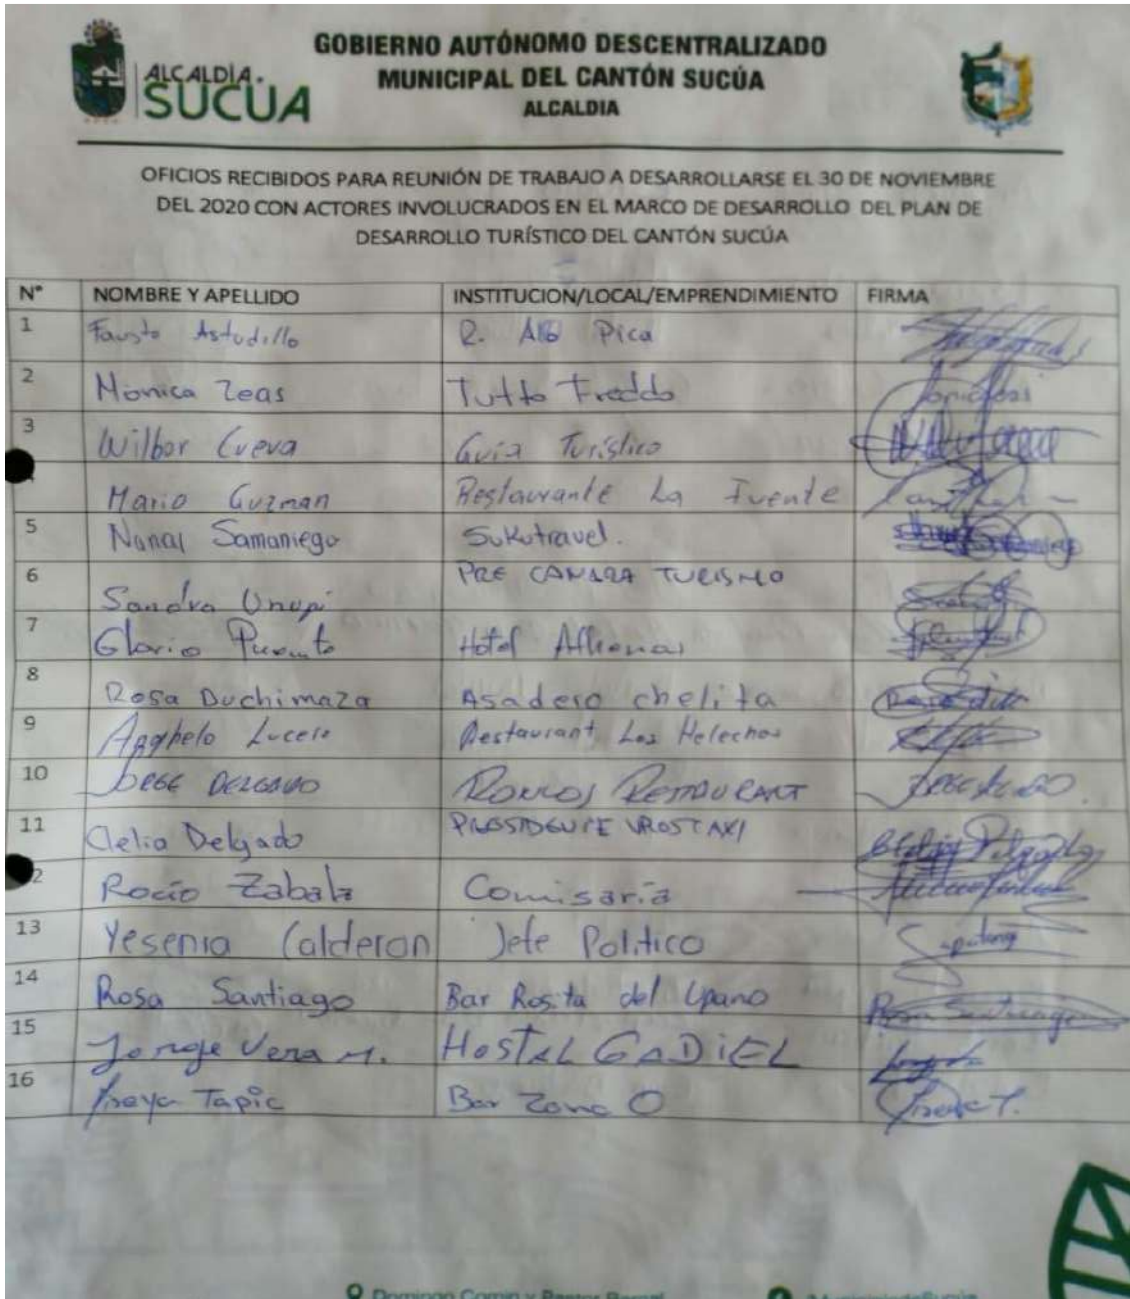 ALCALDÍA.
SUCÚA
GOBIERNO AUTÓNOMO DESCENTRALIZADO
MUNICIPAL DEL CANTÓN SUCÚA
ALCALDIA
OFICIOS RECIBIDOS PARA REUNIÓN DE TRABAJO A DESARROLLARSE EL 30 DE NOVIEMBRE
DEL 2020 CON ACTORES INVOLUCRADOS EN EL MARCO DE DESARROLLO DEL PLAN DE
DESARROLLO TURÍSTICO DEL CANTÓN SUCÚA
N° NOMBRE Y APELLIDO INSTITUCION/LOCAL/EMPRENDIMIENTO FIRMA
1 Fausto Astudillo R. Pica
2 Mónica Zeas Tutto Freddo
3 Wilbor Cueva Guía Turístico
Mario Guzman Restaurante La Fuente
5 Samaniego Sukutravel.
6 Sandra PRE CAMARA TURISMO
7 Gloria Hotel Athenas
8 Rosa Duchimaza Asadero chelita
9 Lucero Restaurant Los Helechos
10 JORGE DELGADO RESTAURANT JORGE
11 Clelia Delgado PRESIDENTE Clelia Delgado
2 Rocío Zabala Comisaría
13 Yesenia Calderon Jefe Politico
14 Rosa Santiago Bar Rosita del Upano Rosa Santiago
15 Jorge Vera M. HOSTAL GADiEL
16 Tapia Bar Zona O
Domingo Comin y